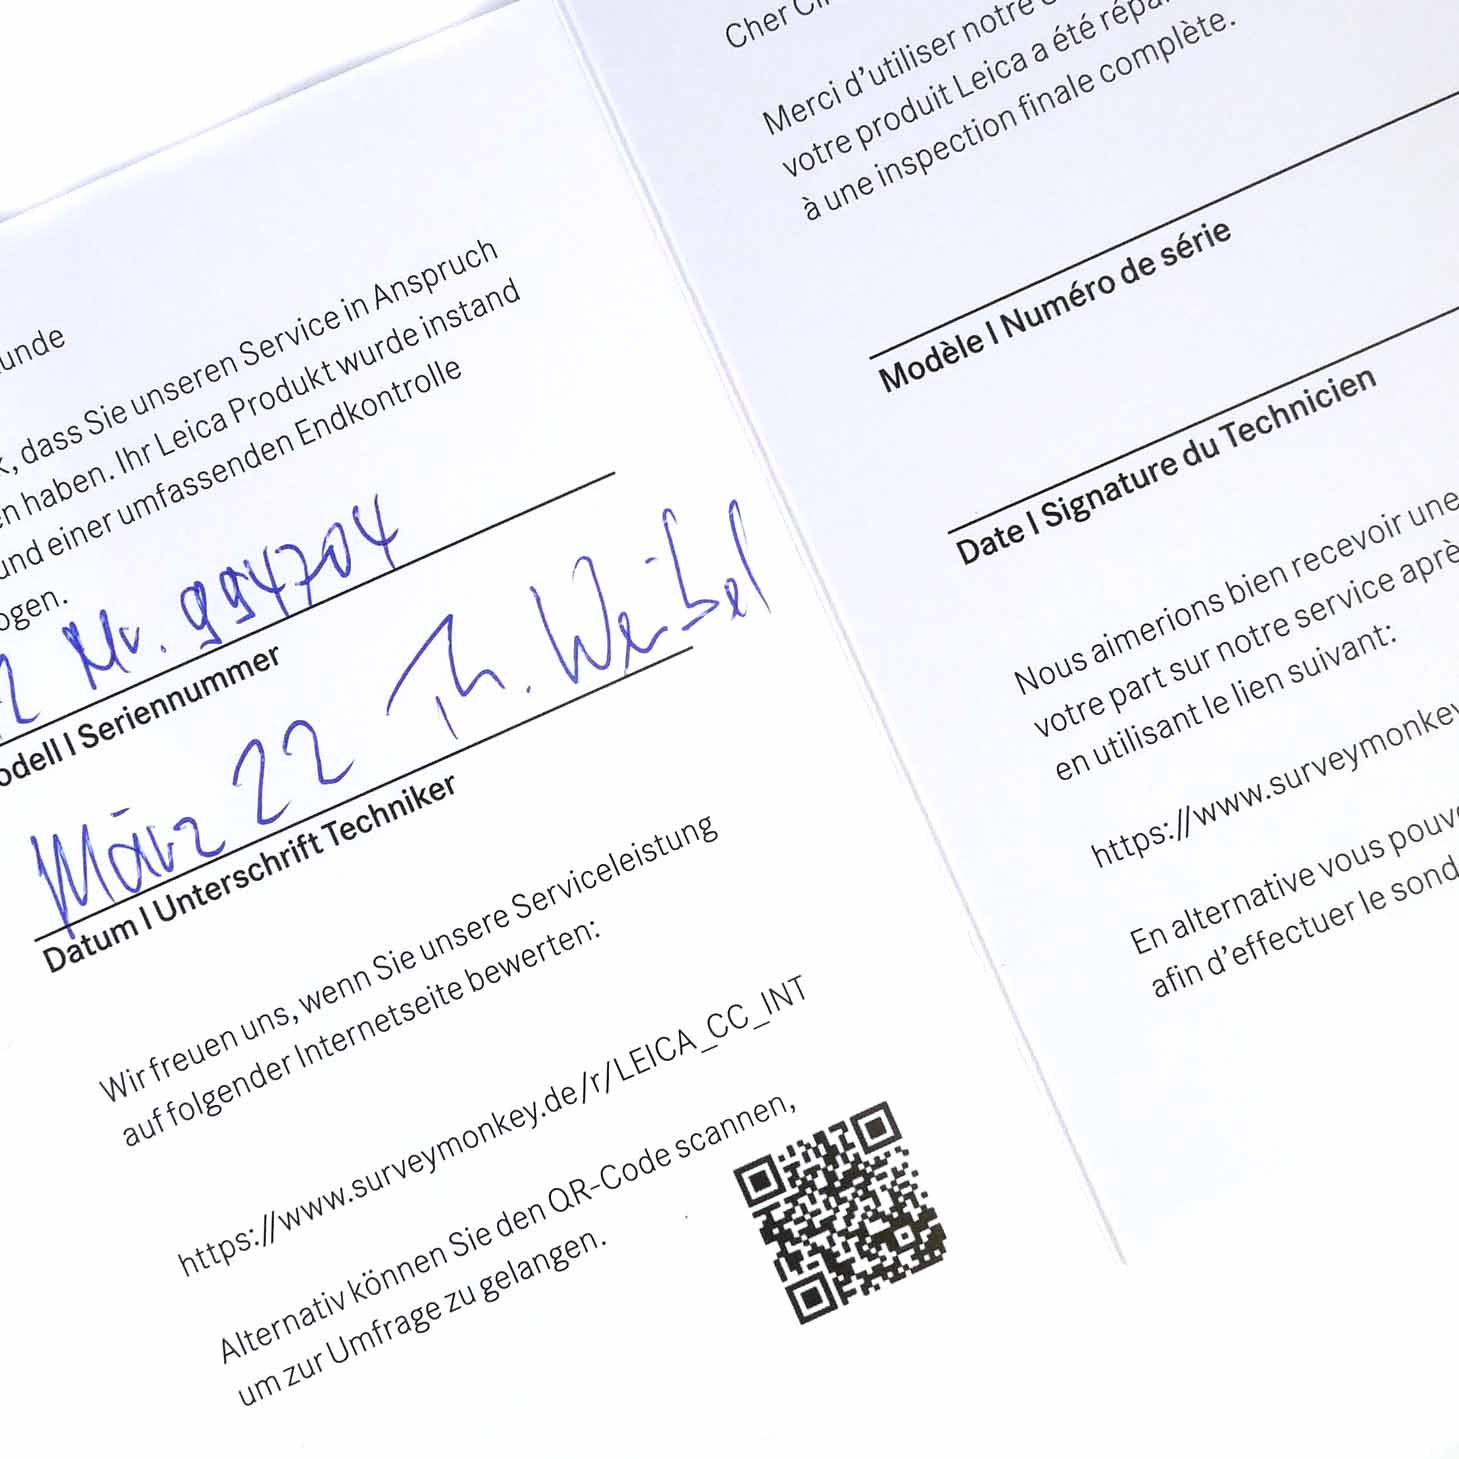 unde
, dass Sie unseren Service in Anspruch
en haben. Ihr Leica Produkt wurde instand
und einer umfassenden Endkontrolle
ogen.
Nr. 994704
odell | Seriennummer
März 22 Th. Weibel
Datum | Unterschrift Techniker
Wir freuen uns, wenn Sie unsere Serviceleistung
auf folgender Internetseite bewerten:
https://www.surveymonkey.de/r/LEICA_CC_INT
Alternativ können Sie den QR-Code scannen,
um zur Umfrage zu gelangen.
Cher
Merci d'utiliser notre
votre produit Leica a été répa
à une inspection finale complète.
Modèle | Numéro de série
Date | Signature du Technicien
Nous aimerions bien recevoir une
votre part sur notre service après
en utilisant le lien suivant:
https://www.surveymonkey
En alternative vous pouv
afin d'effectuer le sond